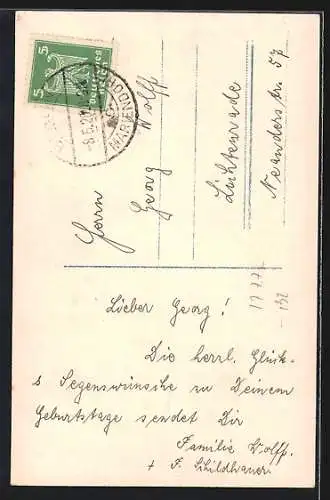 5
5
Herrn
Georg Wolff
Lichtenrade
Neanderstr. 57
1977
132
Lieber Georg!
Die herrl. Glück-
s Segenswünsche zu Deinem
Geburtstage sendet Dir
Familie Wolff.
+ F. Schildhauer